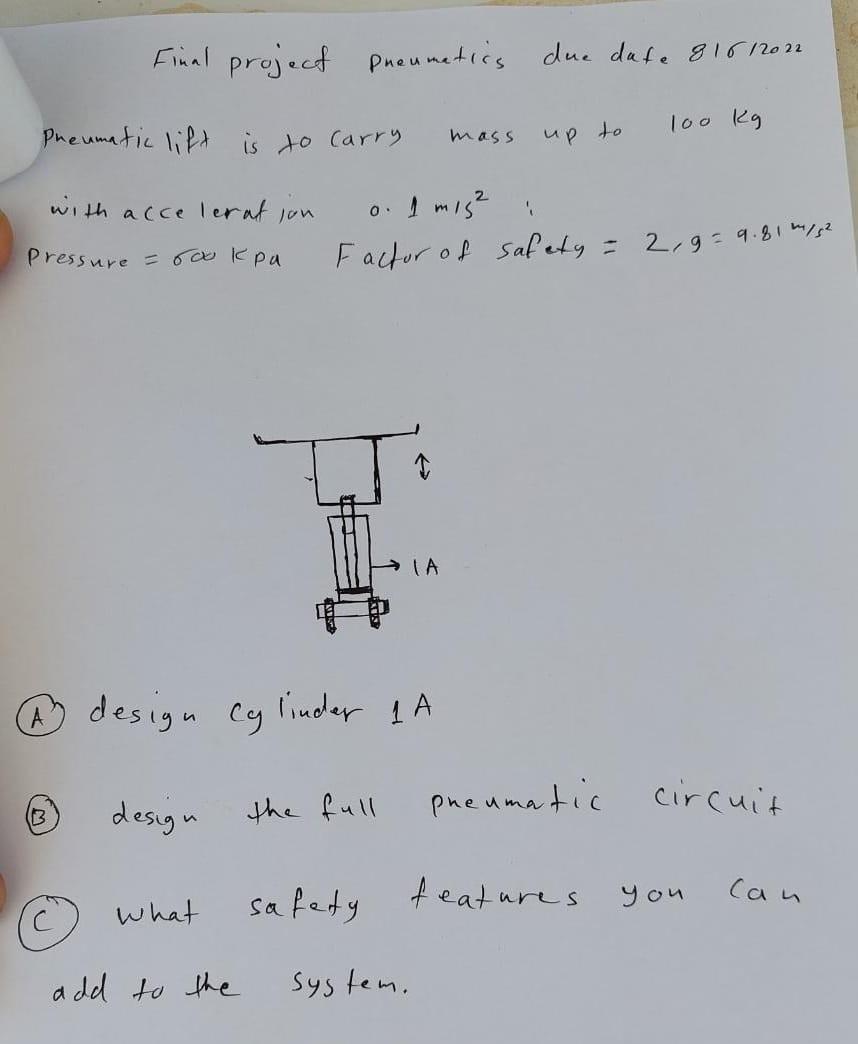 Final project pneumatics due date 8/6/2022
Pneumatic lift is to carry mass up to 100 kg
with acceleration 0.1 m/s² ;
Pressure = 600 kpa Factor of safety = 2, g = 9.81 m/s²
1A
A design cylinder 1A
B design the full pneumatic circuit
C what safety features you can
add to the system.